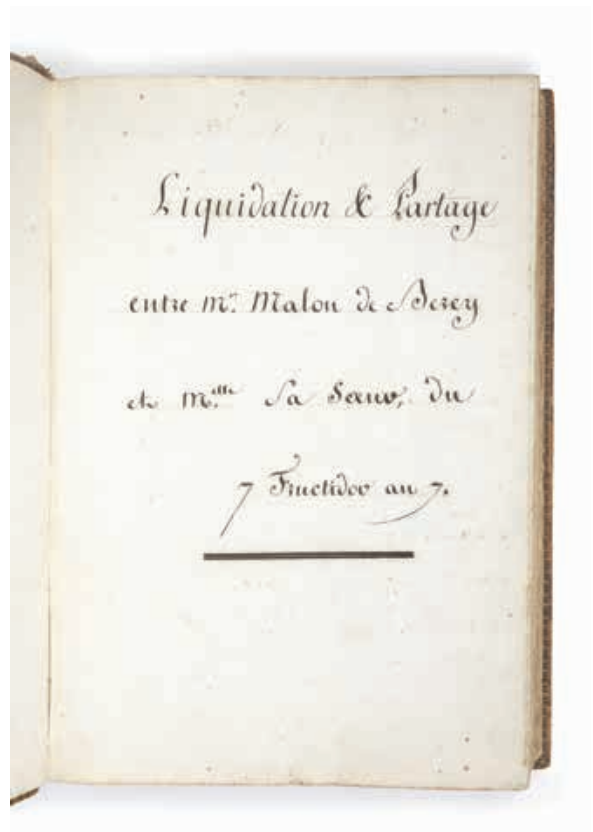 Liquidation & Partage
entre Mr. Malon de Bercy
et Mlle. Sa Sœur, du
7 Fructidor an 7.